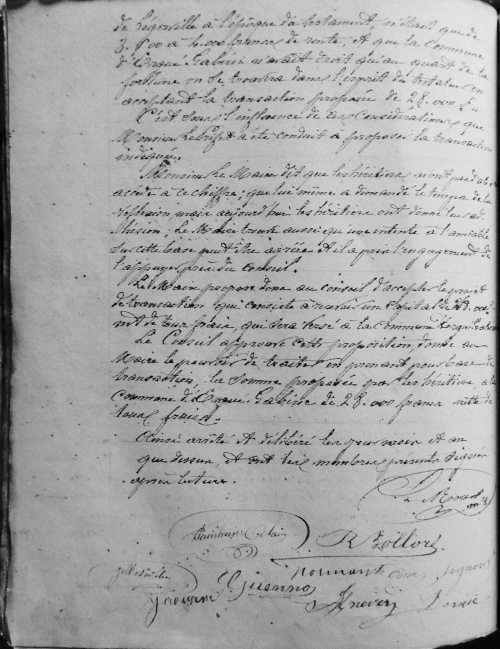 de Legouille à l'époque du testament, n'était que de
3.500 à 4.000 francs de rente, et que la Commune
d'Ergué-Gabéric n'avait droit qu'au quart de la
fortune on se trouva dans l'esprit du testateur en
acceptant la transaction proposée de 28.000 f.
C'est sous l'influence de ces considérations que
Monsieur le Préfet a été conduit à proposer la transaction
indiquée.
Monsieur le Maire dit que les héritiers n'ont pas d'abord
accédé à ce chiffre; que lui même a demandé le temps de la
réflexion mais aujourd'hui les héritiers ont donné leur ad
hésion; Le Maire trouve aussi qu'une entente à l'amiable
sur cette base peut être agréée et il a pris l'engagement de
l'appuyer près du conseil.
Le Maire propose donc au conseil d'accepter le projet
de transaction qui consiste à recevoir un capital de 28.000 f
net de tous frais, qui sera versé à la commune d'Ergué-Gabéric
Le Conseil approuve cette proposition, donne au
Maire le pouvoir de traiter en prenant pour base de
transaction, la somme proposée par les héritiers à la
commune d'Ergué-Gabéric de 28.000 francs nette de
tous frais.
Ainsi arrêté et délibéré les jour mois et an
que dessus, et ont les membres présents signé
après lecture.
Le Maire
R Bolloré
Guenno